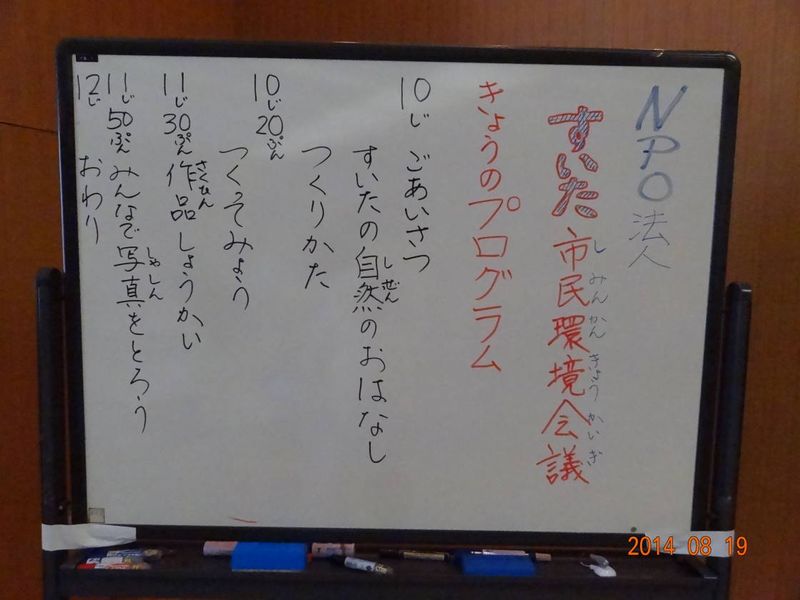 NPO法人
すいた市民環境会議
しみんかんきょうかいぎ
きょうのプログラム
10じ ごあいさつ
すいたの自然のおはなし
しぜん
つくりかた
10じ20ぷん
つくってみよう
11じ30ぷん 作品しょうかい
さくひん
11じ50ぷん みんなで写真をとろう
しゃしん
12じ おわり
2014 08 19